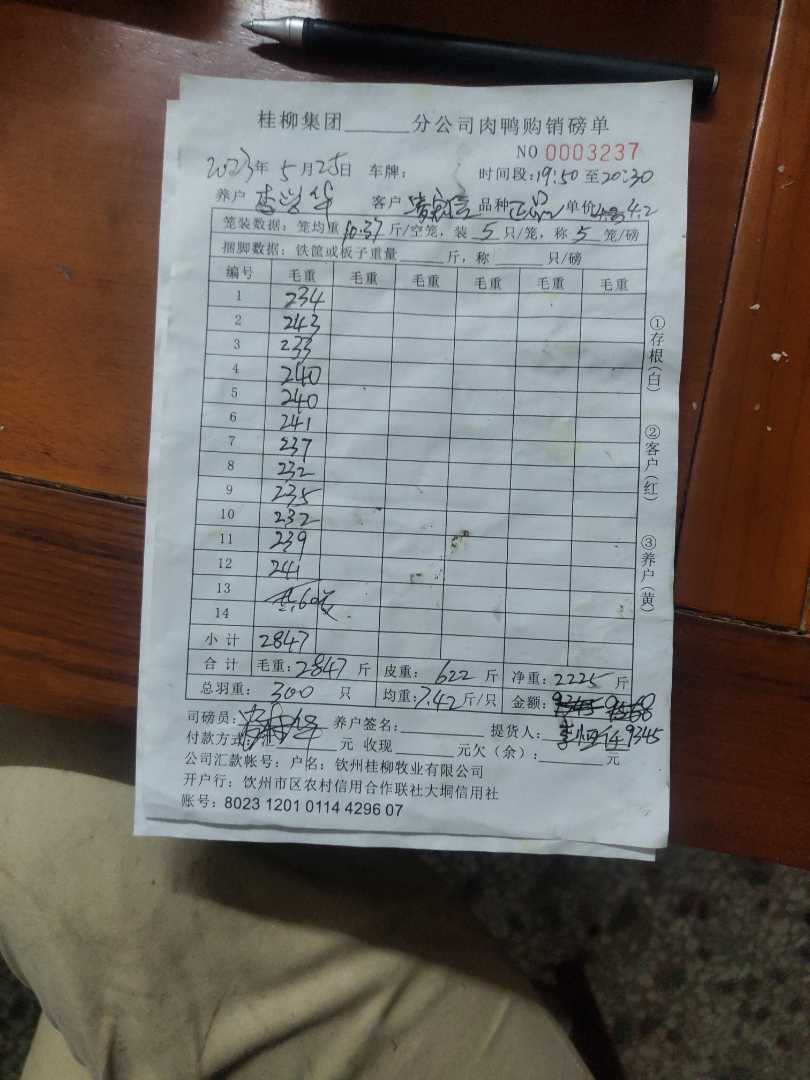 桂柳集团______分公司肉鸭购销磅单
NO 0003237
2023年 5月25日 车牌： 时间段：19:50至20:30
养户 李 华 客户 品种 正品 单价 4.2
笼装数据：笼均重10.37斤/空笼，装 5 只/笼，称 5 笼/磅
捆脚数据：铁筐或板子重量______斤，称______只/磅
编号 毛重 毛重 毛重 毛重 毛重 毛重
1 234
2 243
3 233
4 240
5 240
6 241
7 237
8 232
9 235
10 232
11 239
12 241
13 共60笼
14
小计 2847
合计 毛重：2847斤 皮重：622斤 净重：2225斤
总羽重：300只 均重：7.42斤/只 金额：
司磅员： 养户签名：______ 提货人： 9345
付款方式：汇______元 收现______元欠（余）：______元
公司汇款帐号：户名：钦州桂柳牧业有限公司
开户行：钦州市区农村信用合作联社大垌信用社
账号：8023 1201 0114 4296 07
①存根（白）
②客户（红）
③养户（黄）